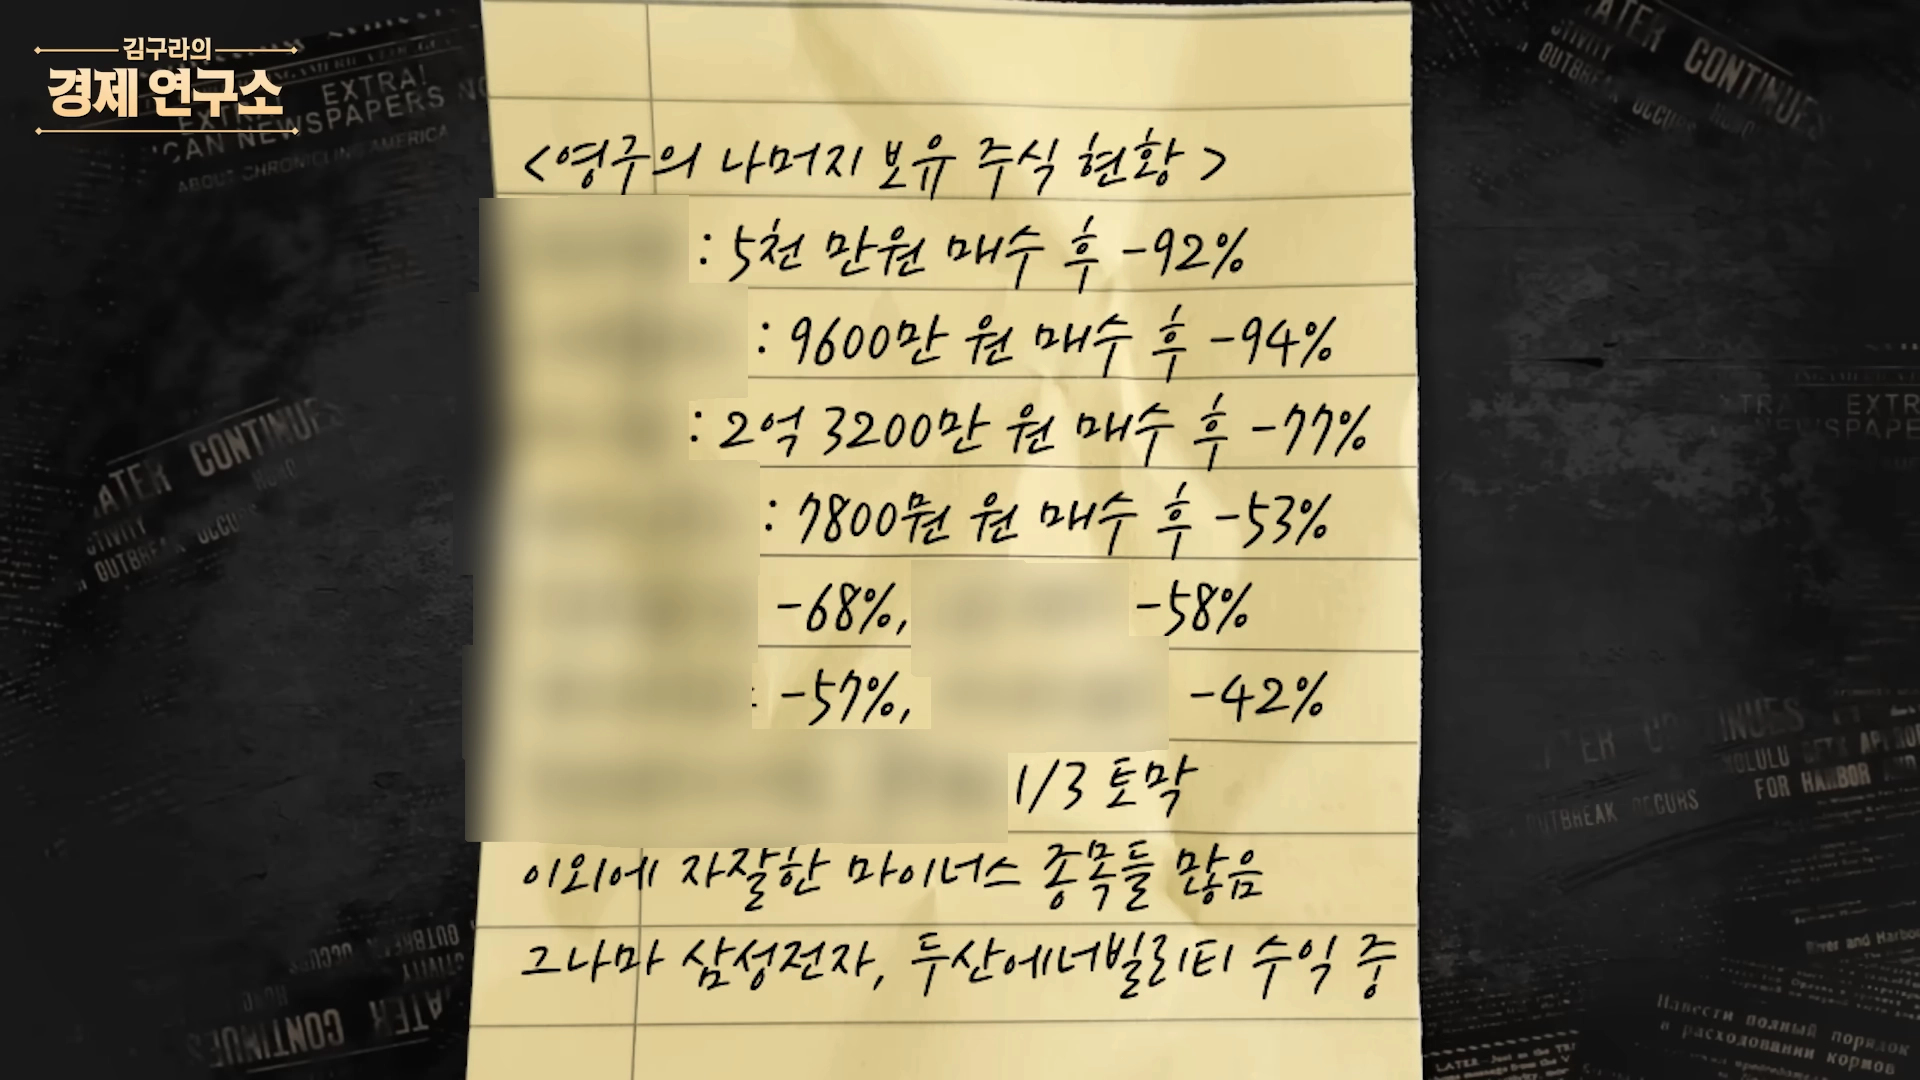 김구라의
경제 연구소
<영구의 나머지 보유 주식 현황>
: 5천 만원 매수 후 -92%
: 9600만 원 매수 후 -94%
: 2억 3200만 원 매수 후 -77%
: 7800뭔 원 매수 후 -53%
-68%, -58%
: -57%, -42%
1/3 토막
이외에 자잘한 마이너스 종목들 많음
그나마 삼성전자, 두산에너빌리티 수익 중
EXTRA!
CAN NEWSPAPERS
ABOUT CHRONICLING AMERICA
LATER CONTINUES
OUTBREAK OCCURS
FOR HARBOR
River and Harbor
Навести полный порядок
в расходовании кормов